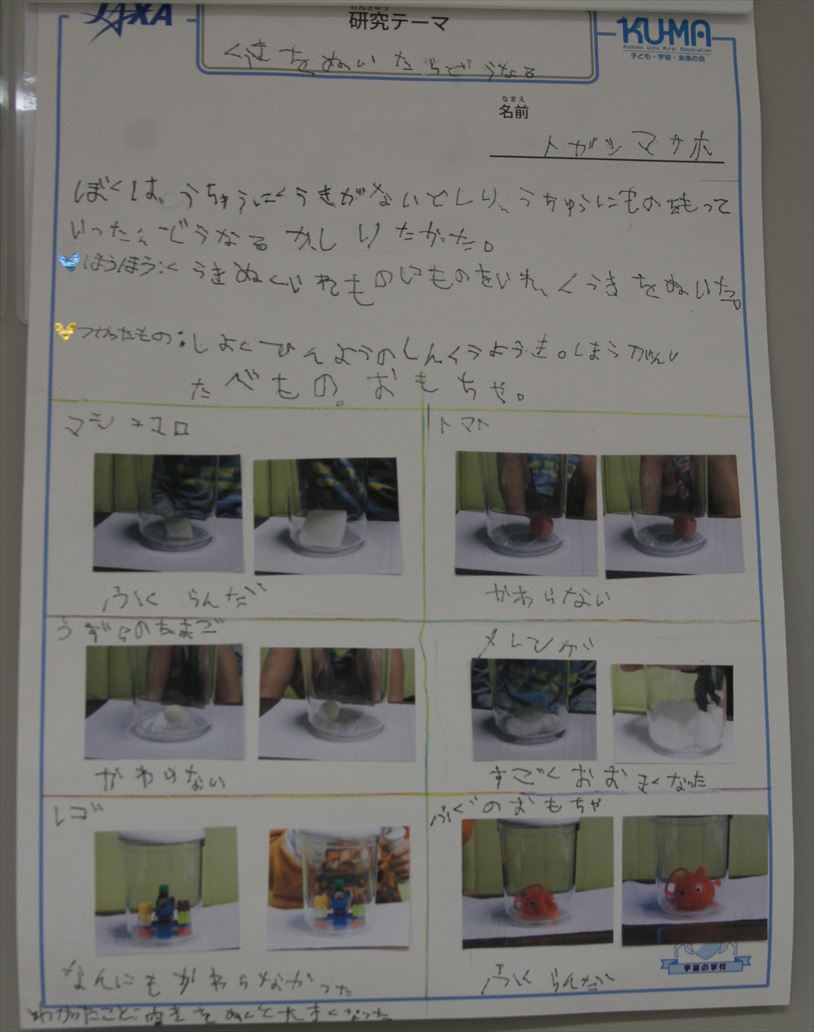 JAXA
けんきゅう
研究テーマ
KU-MA
Kodomo Uchu Mirai Association
子ども・宇宙・未来の会
くうきをぬいたらどうなる
なまえ
名前
トガシマサホ
ぼくは、うちゅうにくうきがないとしり、うちゅうにものをもって
いったらどうなるかしりたかった。
ほうほう:くうきぬくいれものにものをいれ、くうきをぬいた。
つかったもの:しょくひんようのしんくうようき。
たべもの。おもちゃ。
マシュマロ
トマト
ふくらんだ
かわらない
うずらのたまご
メレンゲ
かわらない
すごくおおきくなった
レゴ
ふぐのおもちゃ
なんにもかわらなかった
ふくらんだ
宇宙の学校
わかったこと:空きをぬくと大きくなった